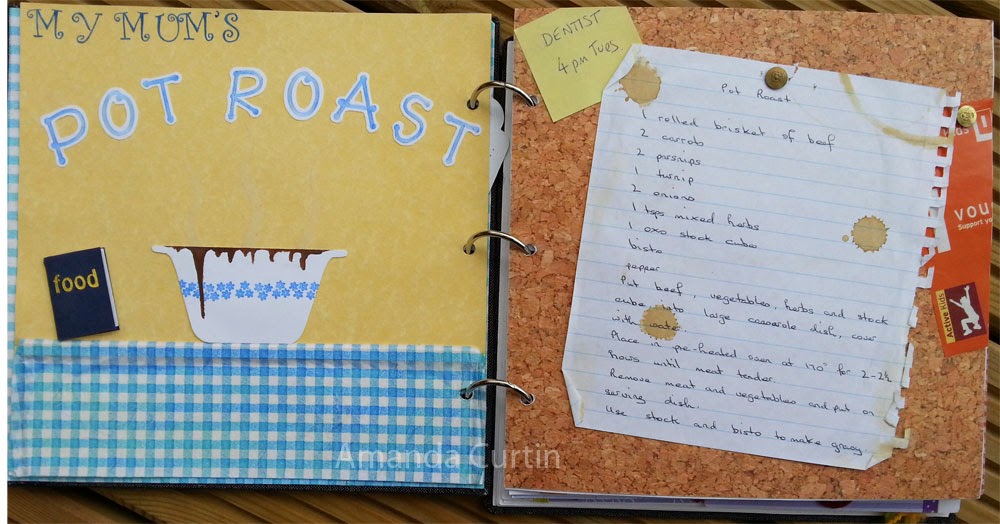 MY MUM'S
POT ROAST
food
DENTIST
4pm Tues.
Pot Roast
1 rolled brisket of beef
2 carrots
2 parsnips
1 turnip
2 onions
1 tsps mixed herbs
1 oxo stock cube
bisto
pepper
Put beef, vegetables, herbs and stock
cube into large casserole dish, cover
with water.
Place in pre-heated oven at 170° for 2-2½
hours until meat tender.
Remove meat and vegetables and put on
serving dish.
Use stock and bisto to make gravy.
VOU
Support yo
Active Kids
Amanda Curtin